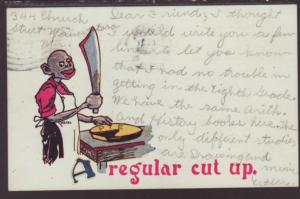 344 Church
Street
Dear Friend; I thought
I would write you a few
lines to let you know
that I had no trouble in
getting in the Eighth Grade.
We have the same Arith.
and History books here. The
only different studies
are Drawing and
music
A regular cut up.